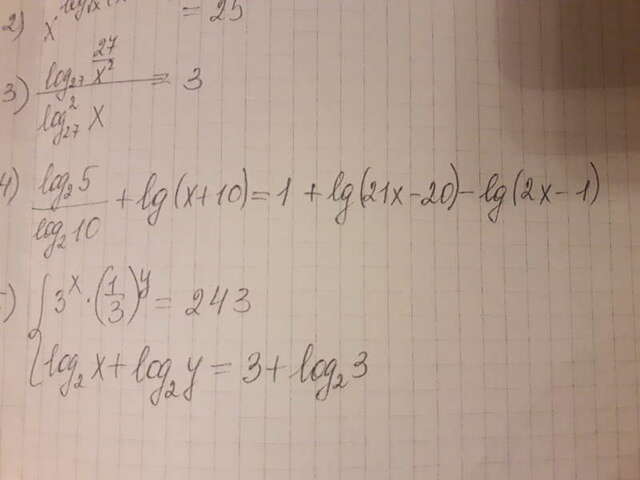 2) x = 25
3) log₂₇ 27/x² / log²₂₇ x = 3
4) log₂5 / log₂10 + lg(x+10) = 1 + lg(21x-20) - lg(2x-1)
) { 3ˣ · (1/3)ʸ = 243
log₂x + log₂y = 3 + log₂3